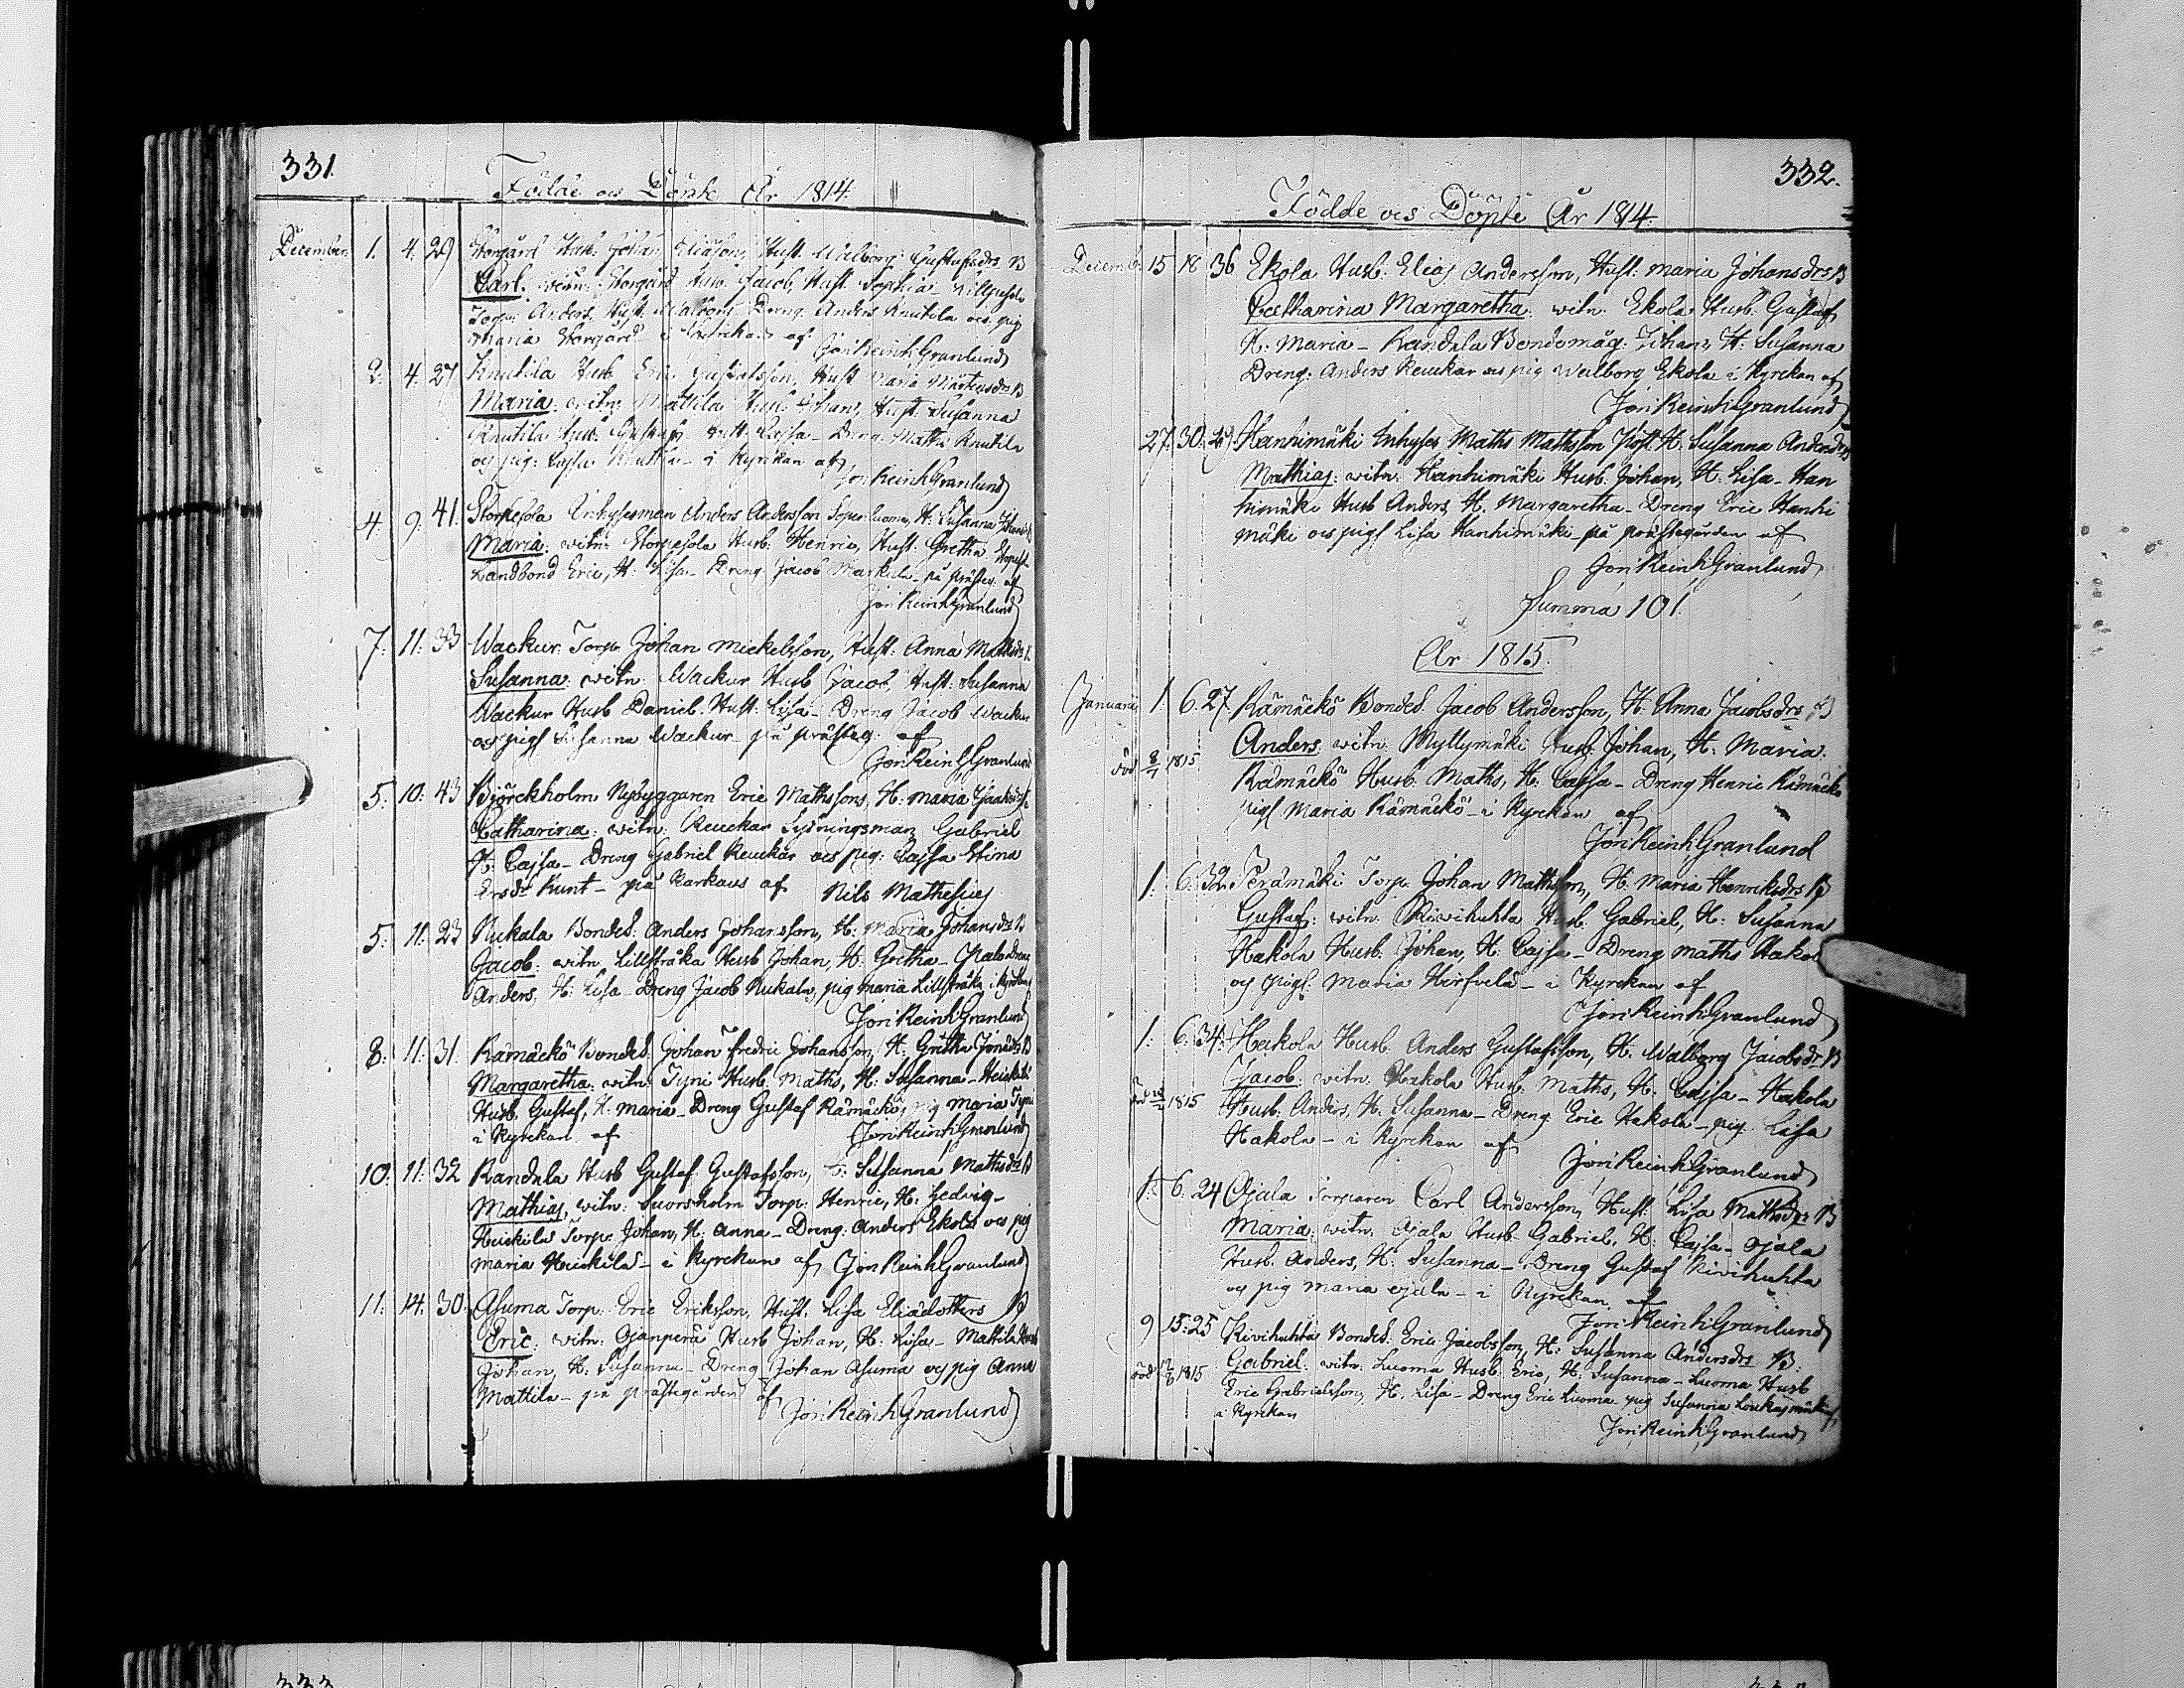 331.
Födde och Döpte År 1814.
December 1. 4. 29 Storgård Husb: Johan Eliasson, Hust. Walborg Gustafsdr B
Carl. witn: Storgård Husb. Jacob, Hust. Sophia
Torp: Anders, Hust. Dreng. Anders Knutila och pig
Maria Storgård i Kyrckan af Jon Reinh Granlund
2. 4. 27 Knutila Husb Eric Gustafsson, Hust Maria B
Maria: witn: Mattila Husb: Johan, Hust. Susanna
Knutila Husb: Gustaf, Hust. Cajsa - Dreng Maths Knutila
och pig: Cajsa Knutila - i Kyrckan af
Jon Reinh Granlund
4. 9. 41. Inhysesman Anders Andersson H: Susanna
Maria: witn: Husb: Henric, Hust: Gretha
Landbond Eric, H: Lisa - Dreng Jacob Markula - på prästeg: af
Jon Reinh Granlund
7. 11. 33 Wackur Torp: Johan Mickelsson, Hust: Anna Mathsdr
Susanna: witn: Wackur Husb Jacob, Hust: Susanna
Wackur Husb Daniel. Hust: Lisa - Dreng Jacob Wackur
och pig Susanna Wackur - på prästeg: af
Jon Reinh Granlund
5. 10. 43 Björckholm Nybyggaren Eric Mathsson, H: Maria
Catharina: witn: Reuckar Gabriel
H: Cajsa - Dreng Gabriel Reuckar och pig: Cajsa Stina
Ersdr Kunt - på Karkaus af Nils Mathesius
5. 11. 23 Nukala Bondes: Anders Johansson, H: Maria Johansdr B
Jacob: witn Lillstråka Husb Johan, H: Gretha -
Anders, H: Lisa - Dreng Jacob Nukala, pig Maria Lillstråka i Kyrckan
Jon Reinh Granlund
8. 11. 31. Rämäckö Bondes: Johan Fredric Johansson H: Gretha B
Margaretha: witn: Tyni Husb: Maths, H: Susanna -
Husb. Gustaf, H: Maria - Dreng Gustaf Rämäckö, pig Maria Tyni
i Kyrckan af Jon Reinh Granlund
10. 11. 32 Randala Husb Gustaf Gustafsson, H: Susanna Mathsdr B
Mathias, witn: Torp: Henric, H: Hedvig -
Heickilä Torp: Johan, H: Anna - Dreng: Anders Ekola och pig
Maria Heickilä - i Kyrckan af Jon Reinh Granlund
11. 14. 30. Asuma Torp: Eric Eriksson, Hust. Lisa Eliadotters B
Eric: witn: Ojanperä Husb Johan, H: Lisa - Mattila Husb
Johan, H: Susanna - Dreng Johan Asuma och pig Anna
Mattila - på prästegården af Jon Reinh Granlund
332.
Födde och Döpte År 1814.
Decemb: 15 18 36 Ekola Husb: Elias Andersson, Hust: Maria Johansdrs B
Catharina Margaretha: witn: Ekola Husb. Gustaf
H: Maria - Randala Bondemåg: Johan, H: Susanna
Dreng: Anders Reuckar och pig Walborg Ekola i Kyrckan af
Jon Reinh Granlund
27. 30. 29. Hanhimäki Inhyses Maths Mathsson H: Susanna Andersdr B
Mathias: witn: Hanhimäki Husb: Johan, H: Lisa - Han
himäki Husb Anders, H. Margaretha - Dreng Eric Hanhi
mäki och pig Lisa Hanhimäki - på prästegården af
Jon Reinh Granlund
Summa 101.
År 1815.
Januarii 1. 6. 27. Rämäckö Bondes. Jacob Andersson, H. Anna Jacobsdrs B
Anders: witn: Myllymäki Husb: Johan, H: Maria.
död 8/7 1815 Rämäckö Husb: Maths, H: Cajsa - Dreng Henric Rämäckö
pig Maria Rämäckö - i Kyrckan af
Jon Reinh Granlund
1. 6. 32. Perämäki Torp: Johan Mathsson, H. Maria Henriksdrs B
Gustaf: witn: Kivihuhta Husb: Gabriel, H: Susanna
Hakola Husb: Johan, H: Cajsa - Dreng Maths Hakola
och pig: Maria Hirfvelä - i Kyrckan af
Jon Reinh Granlund
1. 6. 34. Hakola Husb. Anders Gustafsson, H. Walborg Jacobsdr B
Jacob: witn: Hakola Husb: Maths, H. Cajsa - Hakola
död 1815 Husb: Anders, H. Susanna - Dreng: Eric Hakola - pig: Lisa
Hakola - i Kyrckan af
Jon Reinh Granlund
1. 6. 24 Ojala Torparen Carl Andersson, Hust: Lisa Mathsdr B
Maria: witn: Ojala Husb Gabriel, H: Cajsa - Ojala
Husb. Anders, H: Susanna - Dreng Gustaf Kivihuhta
och pig Maria Ojala - i Kyrckan af
Jon Reinh Granlund
9 15. 25 Kivihuhta Bondes: Eric Jacobsson, H: Susanna Andersdrs B.
Gabriel: witn: Luoma Husb: Eric, H: Susanna - Luoma Husb
död 1815 Eric Gabrielsson, H. Lisa - Dreng Eric Luoma pig Susanna
i Kyrckan
Jon Reinh Granlund
333